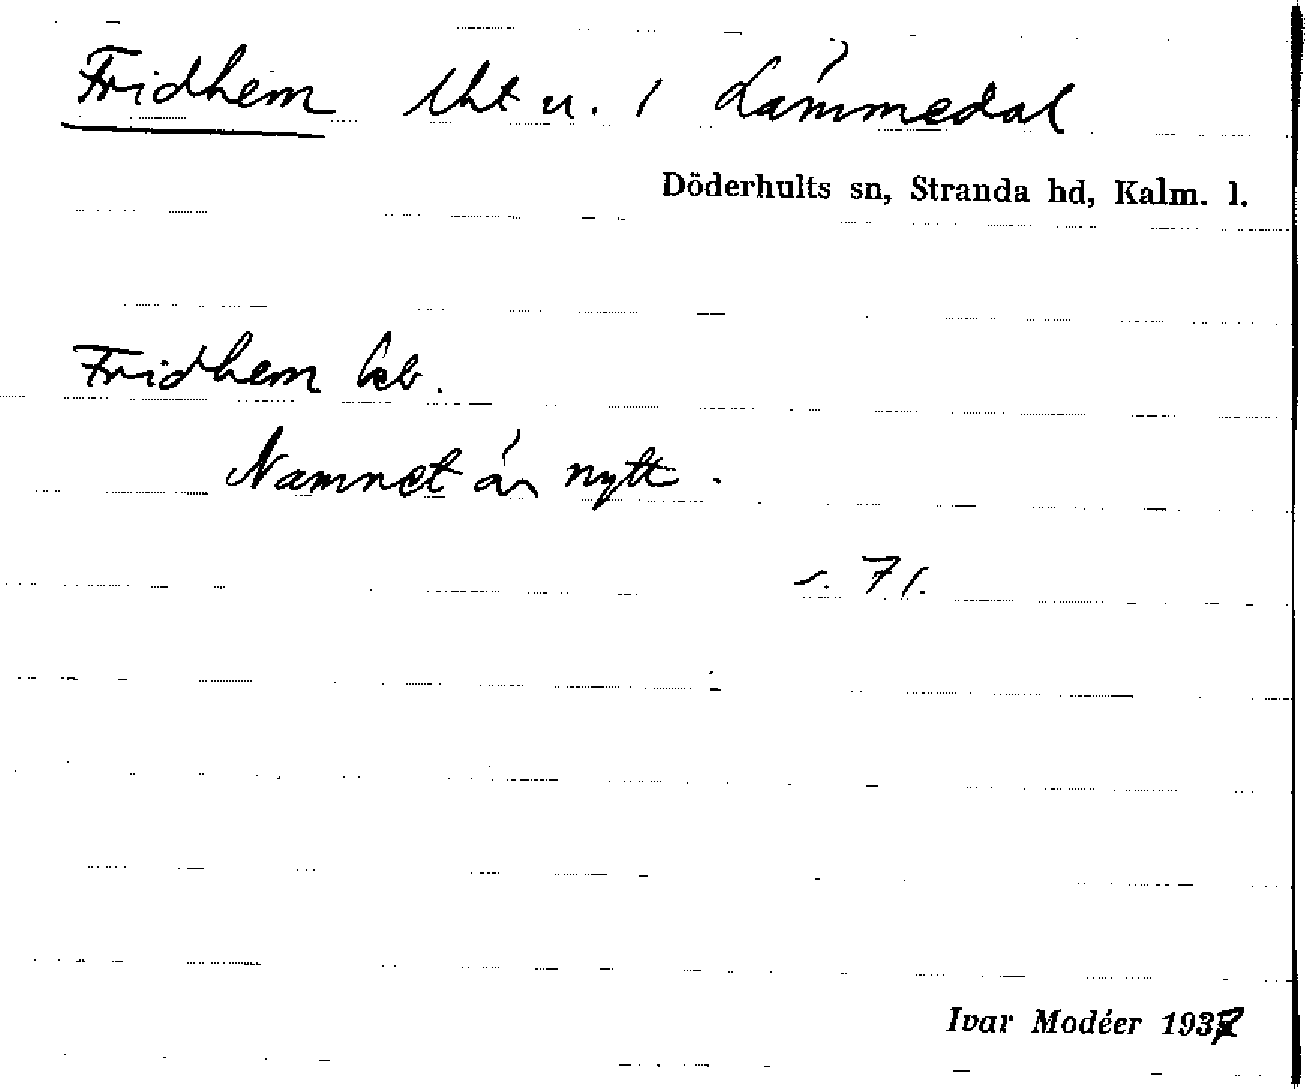 Fridhem lht u. 1 Lämmedal
Döderhults sn, Stranda hd, Kalm. l.
Fridhem
Namnet är nytt.
s. 71.
Ivar Modéer 1937